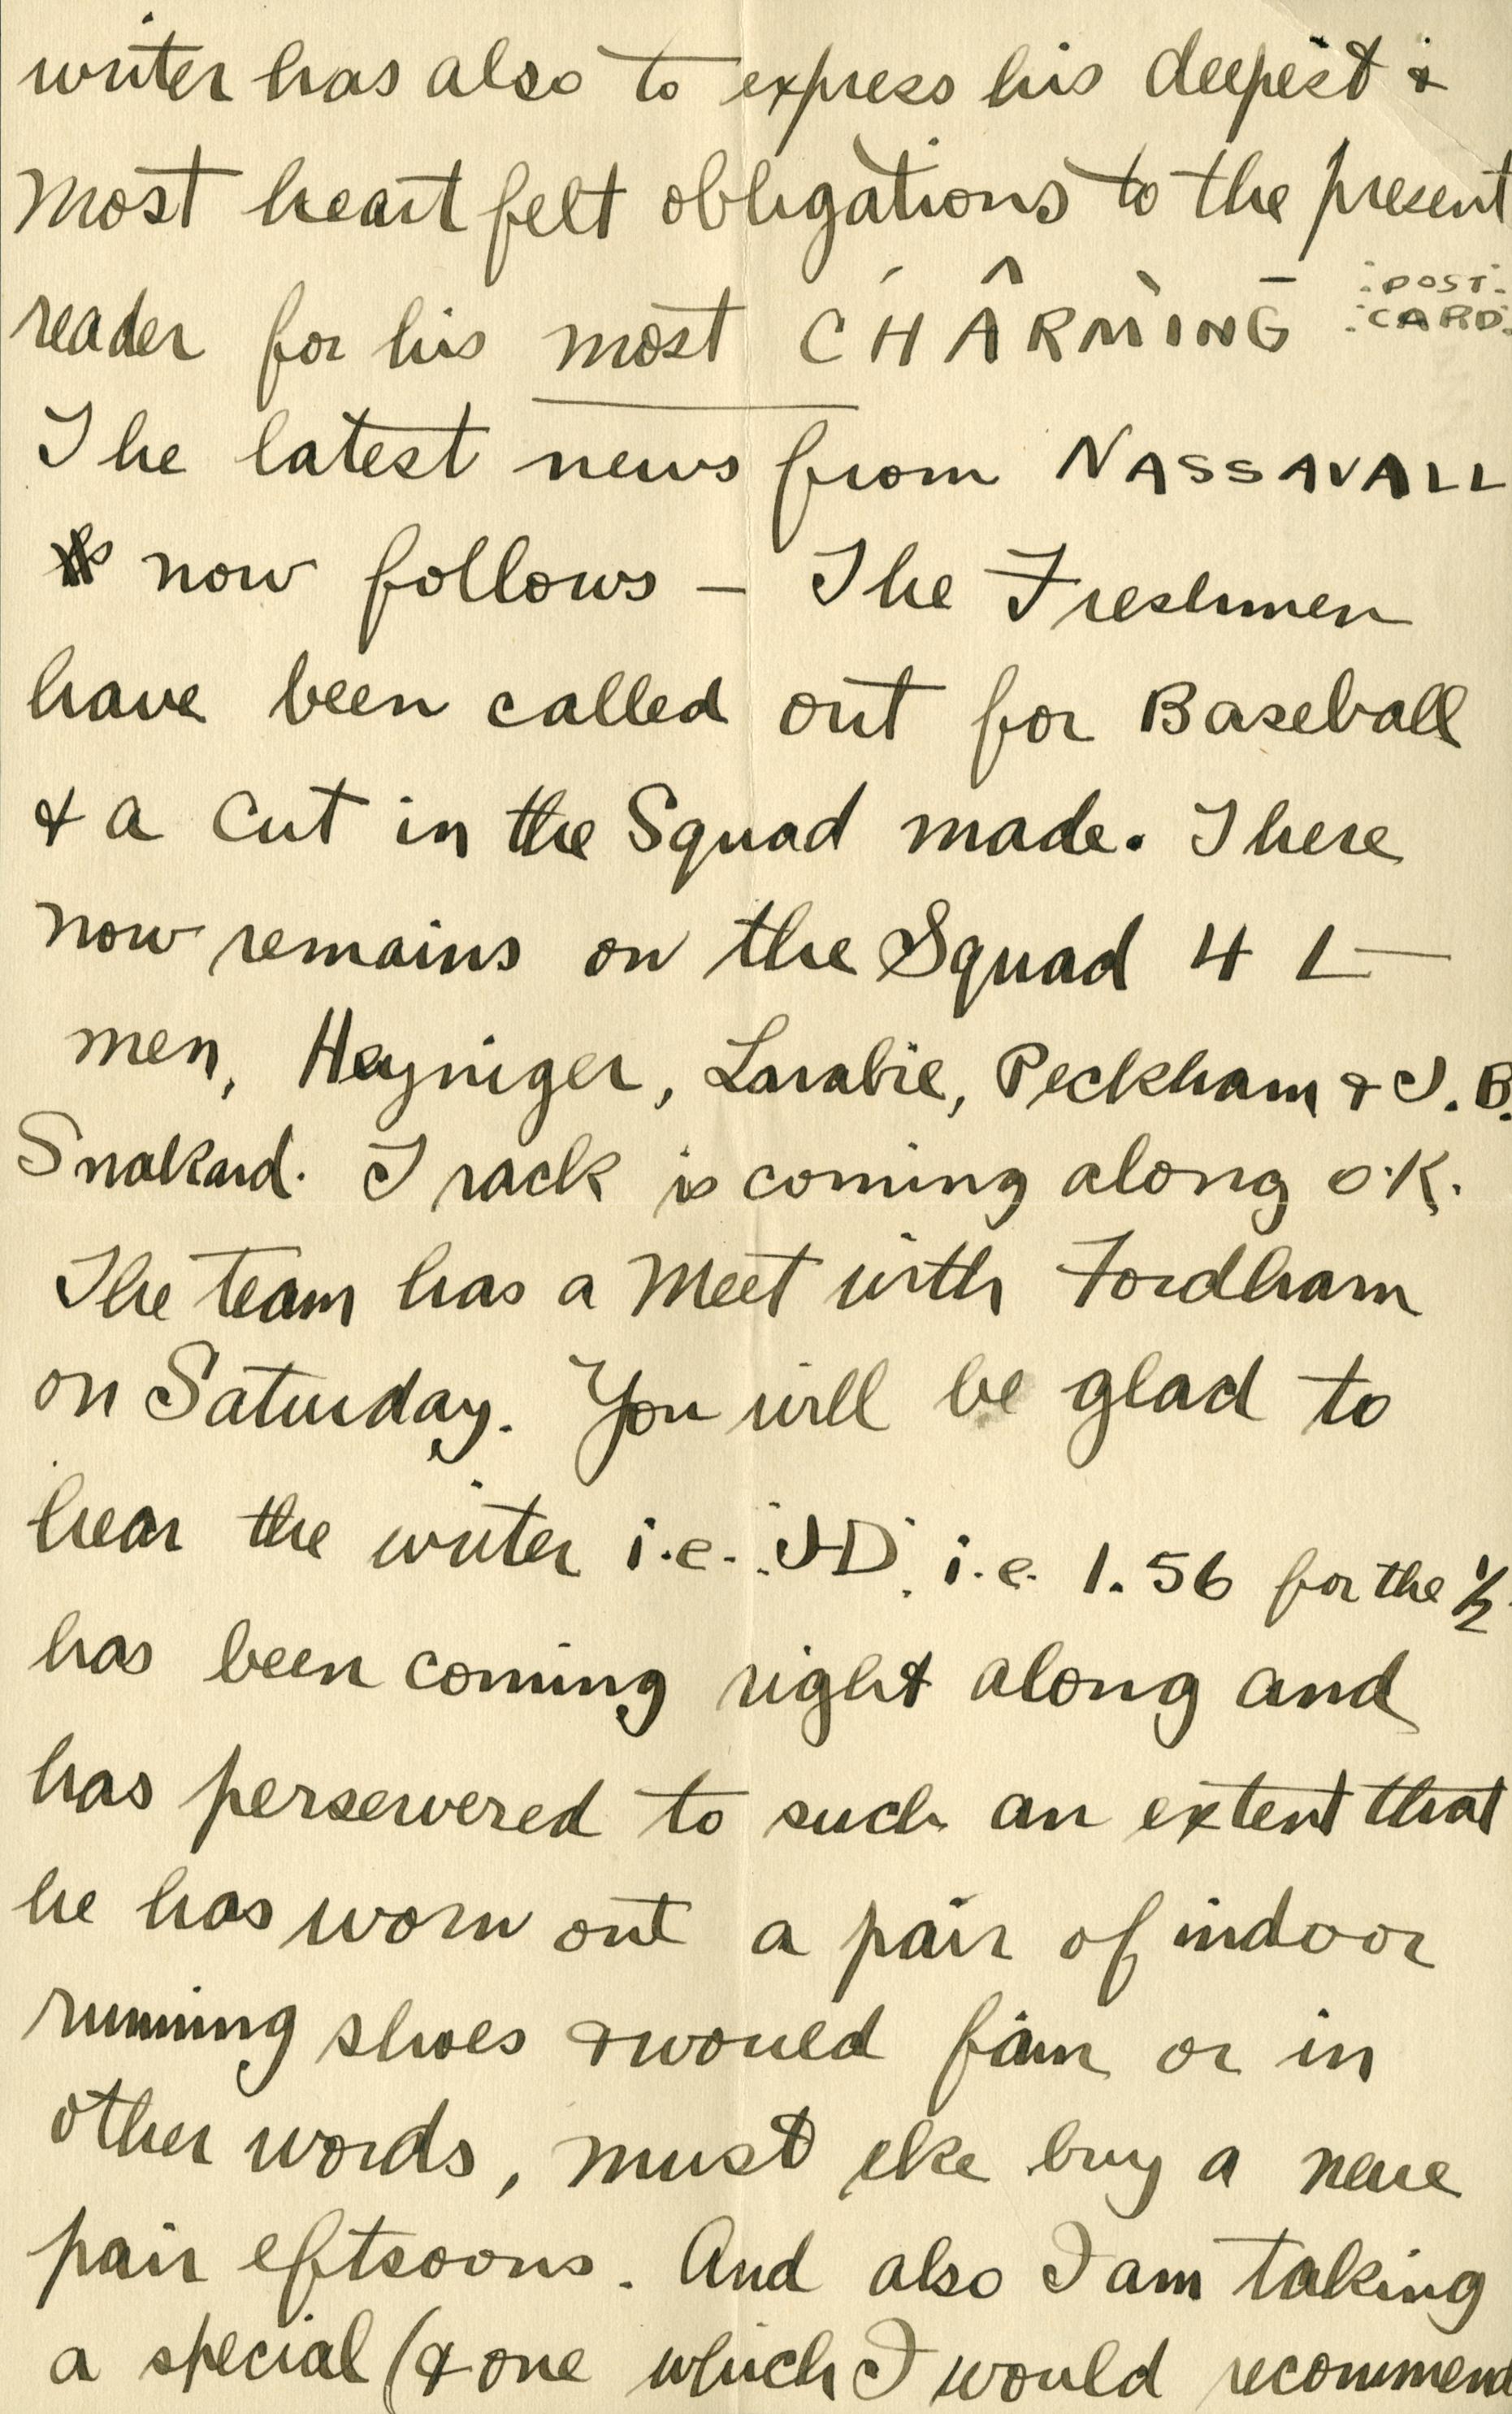 writer has also to express his deepest &
most heart felt obligations to the present
reader for his most CHÂRMING :POST:
:CARD:
The latest news from NASSAVALL
now follows – The Freshmen
have been called out for Baseball
& a cut in the Squad made. There
now remains on the Squad 4 L—
men, Heyniger, Larabie, Peckham & J. B.
Snakard. Track is coming along O.K.
The team has a Meet with Fordham
on Saturday. You will be glad to
hear the writer i.e. JHD. i.e. 1.56 for the ½
has been coming right along and
has persewered to such an extent that
he has worn out a pair of indoor
running shoes & would fain or in
other words, must eke buy a neue
pair eftsoons. And also I am taking
a special (& one which I would recommend